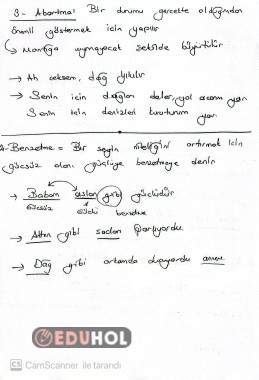 3- Abartma: Bir durumu gerçekte olduğundan
önemli göstermek için yapılır
↳ Mantığa uymayacak şekilde büyütülür
→ Ah çeksem, dağ yıkılır
→ Senin için dağları deler, yol açarım yar
Senin için denizleri kuruturum yar
4-Benzetme = Bir şeyin niteliğini artırmak için
güçsüz olanı güçlüye benzetmeye denir
→ Babam aslan gibi güçlüdür
Güçsüz güçlü benzetme
→ Altın gibi saçları parlıyordu
→ Dağ gibi ortamda duruyordu annem
EDUHOL
CS CamScanner ile tarandı